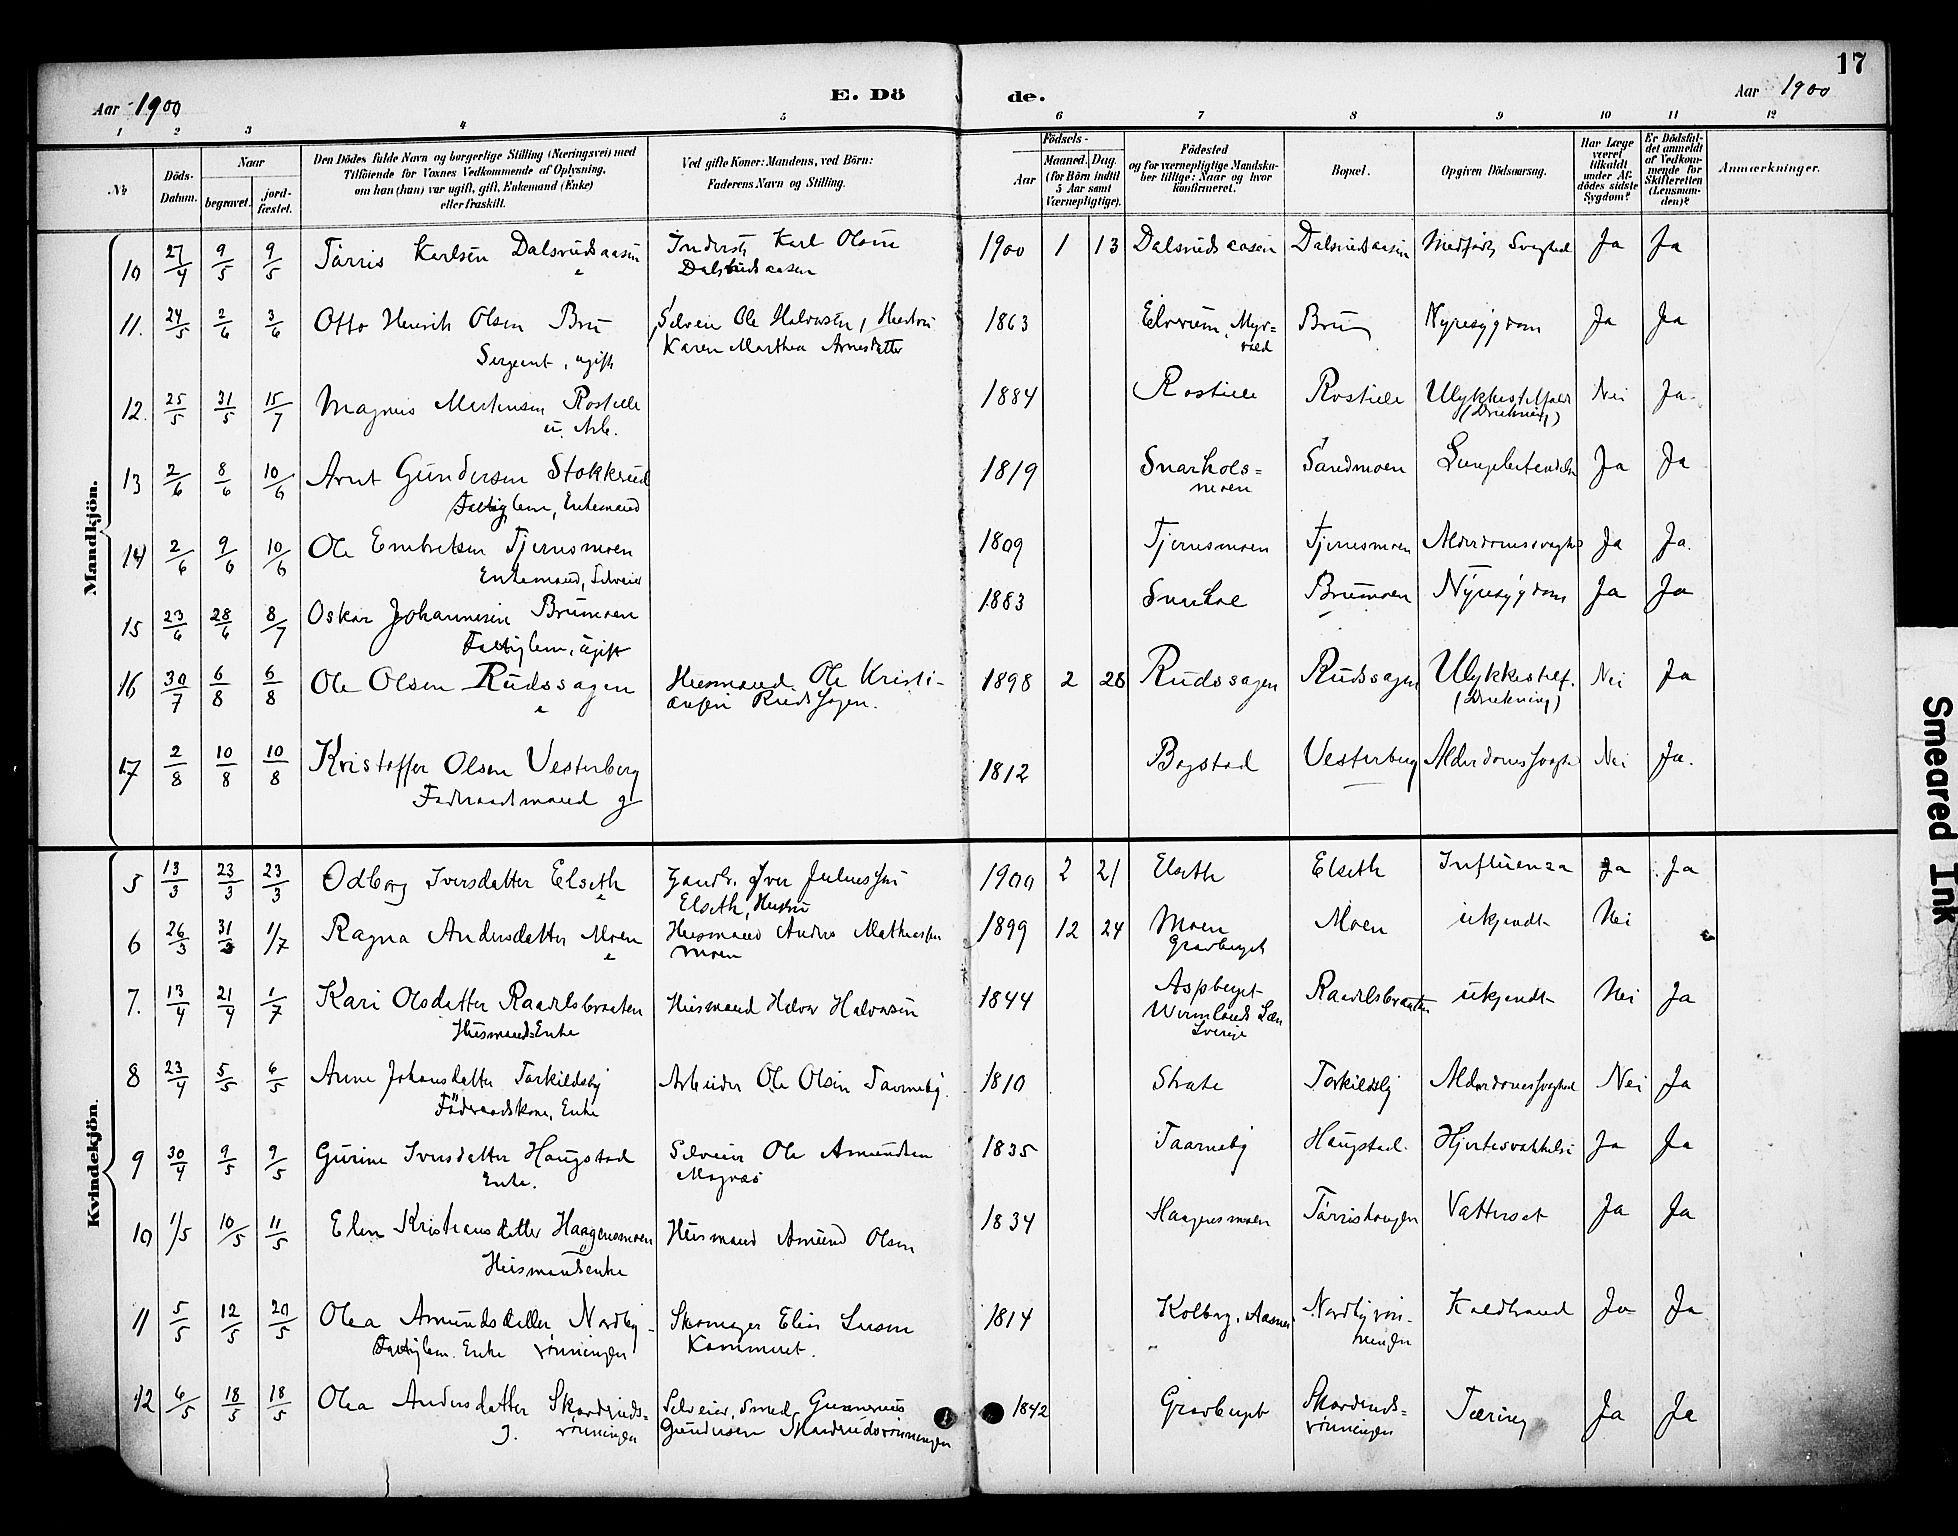 17
Aar 1900 E. Dö de. Aar 1900
1 2 3 4 5 6 7 8 9 10 11 12
No
Döds-Datum.
Naar
begravet.
jord-fæstet.
Den Dödes fulde Navn og borgerlige Stilling (Næringsvei) med
Tilföiende for Voxnes Vedkommende af Oplysning,
om han (hun) var ugift, gift, Enkemand (Enke)
eller fraskilt.
Ved gifte Koner: Mandens, ved Börn:
Faderens Navn og Stilling.
Födsels-
Aar
Maaned. Dag.
(for Börn indtil
5 Aar samt
Værnepligtige).
Födested
og for værnepligtige Mandska-
ber tillige: Naar og hvor
konfirmeret.
Bopæl.
Opgiven Dödsaarsag.
Har Læge
været
tilkaldt
under Af-
dödes sidste
Sygdom?
Er Dödsfal-
det anmeldt
af Vedkom-
mende for
Skifteretten
(Lensman-
den)?
Anmærkninger.
Mandkjön.
10 27/4 9/5 9/5 Tørris Karlsen Dalsrudsaasen Karl Olsen 1900 1 13 Dalsrudsaasen Dalsrudsaasen Medfødt Svaghed Ja Ja
Dalsrudsaasen
11. 24/5 2/6 3/6 Otto Henrik Olsen Bru Selveier Ole Halvorsen, Hustru 1863 Elverum, Myr- Bru Nyresygdom Ja Ja
Sergeant, ugift Karen Marthea Arnesdatter
12. 25/5 31/5 15/7 Magnus Mortensen 1884 Nei Ja
u. Arb. (Drukning)
13 2/6 8/6 10/6 Arnt Gundersen Stokkerud 1819 Snarhols- Sandmoen Lungebetændelse Ja Ja
Fattiglem, Enkemand moen
14 2/6 9/6 10/6 Ole Embretsen Tjernsmoen 1809 Tjernsmoen Tjernsmoen Alderdomssvaghed Ja Ja.
Enkemand, Selveier
15 23/6 28/6 8/7 Oskar Johannesen Brumoen 1883 Snarhol Brumoen Nyresygdom Ja Ja
Fattiglem, ugift
16 30/7 6/8 6/8 Ole Olsen Rudssagen Husmand Ole Kristi- 1898 2 28 Rudssagen Rudssagen Ulykkestilf. Nei Ja
ansen Rudssagen. (Drukning)
17 2/8 10/8 10/8 Kristoffer Olsen Vesterberg 1812 Bogstad Vesterberg Alderdomssvaghed Nei Ja.
Føderaadsmand g
Kvindekjön.
5 13/3 23/3 23/3 Odborg Iversdatter Elseth Iver Juliussen 1900 2 21 Elseth Elseth Influenza Ja Ja
Elseth, Hustru
6 26/3 31/3 1/7 Ragna Andersdatter Moen Husmand Anders Mathiassen 1899 12 24 Moen Moen ukjendt Nei
Moen Gravberget
7. 13/4 21/4 1/7 Kari Olsdatter Raadelsbraaten Husmand Halvor Halvorsen 1844 Aspberget Raadelsbraaten ukjendt Nei Ja
Husmands Enke Wermlands Læn
Sverige
8 23/4 5/5 6/5 Anne Johansdatter Torkildsby Arbeider Ole Olsen Taarneby. 1810 Strate Torkildsby Alderdomssvaghed Nei Ja
Føderaadskone, Enke
9 30/4 9/5 9/5 Gurine Iversdatter Haugstad Selveier Ole Amundsen 1835 Taarneby Haugstad. Hjertesvækkelse Ja Ja
Enke. Magnæs
10 1/5 10/5 11/5 Elen Kristiansdatter Haagensmoen Husmand Amund Olsen 1834 Haagensmoen Tørrishaugen Vattersot Ja Ja
Husmandsenke
11 5/5 12/5 20/5 Olea Amundsdatter Nordby- Skomager Elias 1814 Kolberg, Aasnes Nordbyrøn- Koldbrand Ja Ja
Fattiglem. Enke rønningen Kammeret. ningen
12 6/5 18/5 18/5 Olea Andersdatter Skarderuds- Selveier, Smed Gunnerius 1842 Gravberget Skarderuds- Tæring Ja Ja
g. rønningen Gundersen rønningen
Smeared Ink